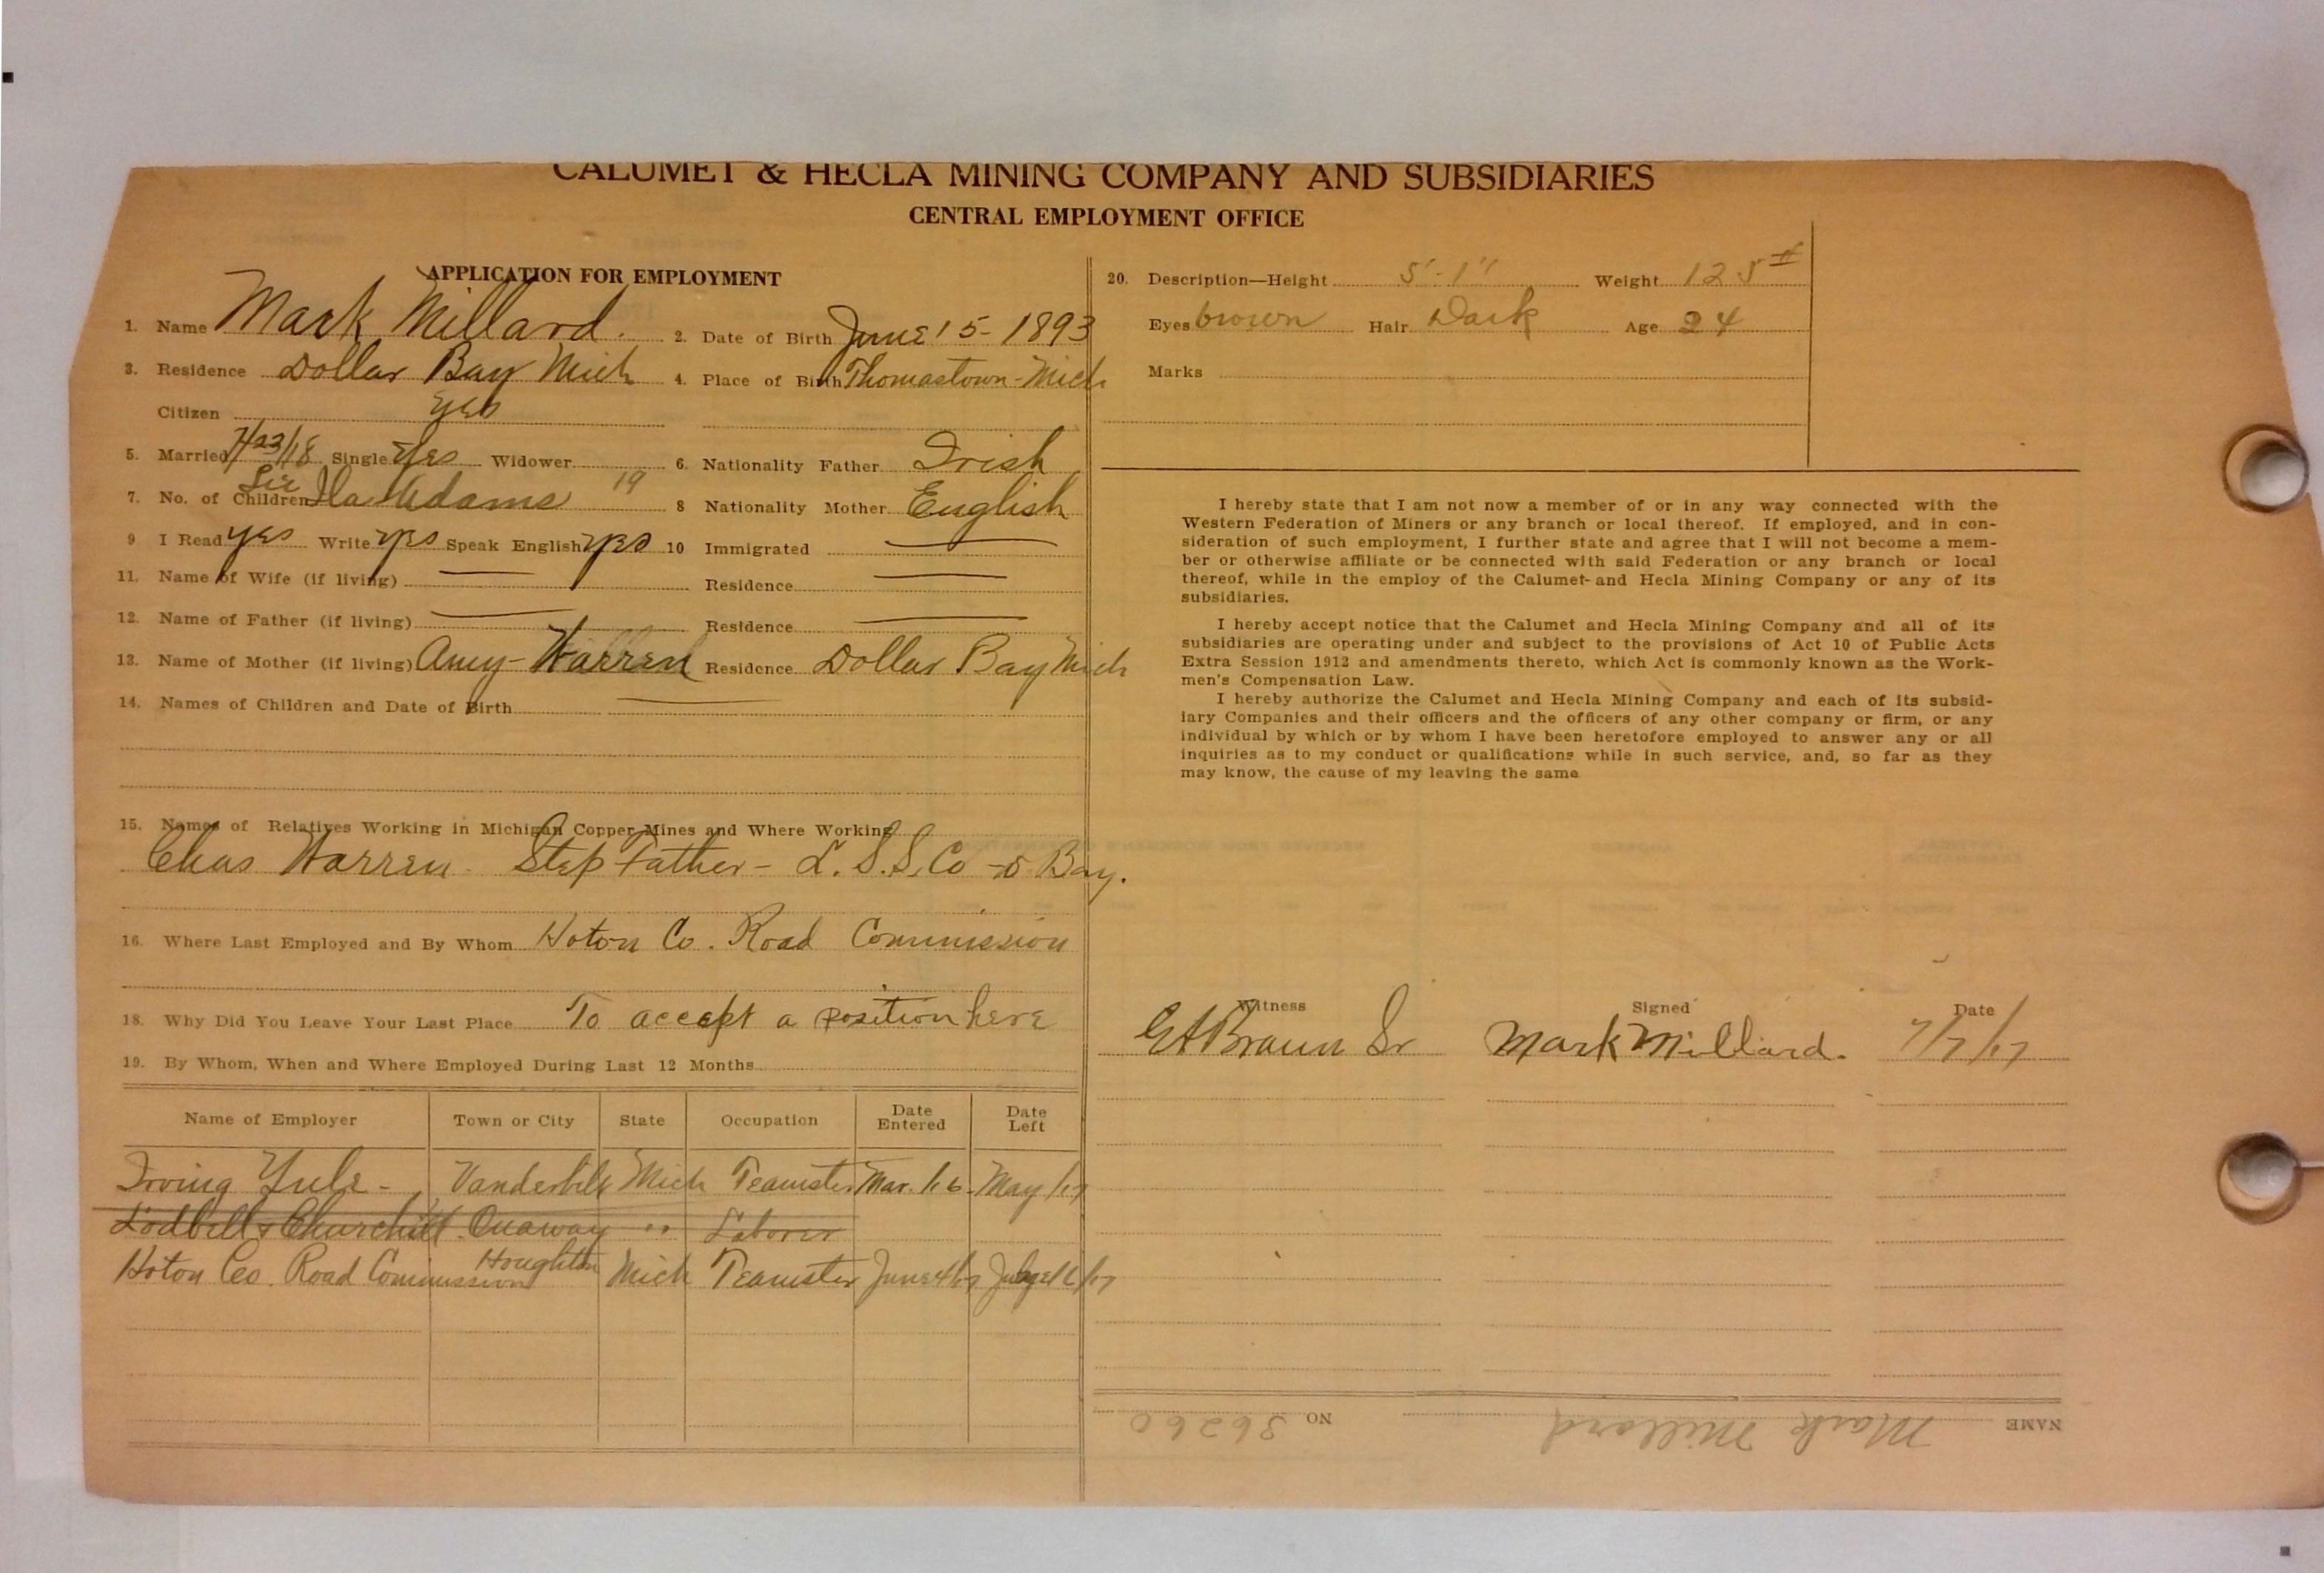 CALUMET & HECLA MINING COMPANY AND SUBSIDIARIES
CENTRAL EMPLOYMENT OFFICE
APPLICATION FOR EMPLOYMENT
1. Name Mark Millard. 2. Date of Birth June 15-1893
3. Residence Dollar Bay Mich 4. Place of Birth Thomastown-Mich
Citizen yes
5. Married 7/23/18 Single Yes Widower 6. Nationality Father Irish
7. No. of Children Ila Adams 19 8 Nationality Mother English
9 I Read yes Write yes Speak English yes 10 Immigrated —
11. Name of Wife (if living) — Residence —
12. Name of Father (if living) — Residence —
13. Name of Mother (if living) Amy-Warren Residence Dollar Bay Mich
14. Names of Children and Date of Birth —
15. Names of Relatives Working in Michigan Copper Mines and Where Working
Chas Warren - Step Father - L.S.S. Co - D Bay.
16. Where Last Employed and By Whom Hoton Co. Road Commission
18. Why Did You Leave Your Last Place To accept a position here
19. By Whom, When and Where Employed During Last 12 Months
Name of Employer Town or City State Occupation Date Entered Date Left
Irving Yule - Vanderbilt Mich Teamster Mar. /16- May /17
Lodbell & Churchill. Onaway " Laborer
Hoton Co. Road Commission Houghton Mich Teamster June 4/17 /17
20. Description—Height 5'-1" Weight 125#
Eyes brown Hair Dark Age 24
Marks
I hereby state that I am not now a member of or in any way connected with the
Western Federation of Miners or any branch or local thereof. If employed, and in con-
sideration of such employment, I further state and agree that I will not become a mem-
ber or otherwise affiliate or be connected with said Federation or any branch or local
thereof, while in the employ of the Calumet and Hecla Mining Company or any of its
subsidiaries.
I hereby accept notice that the Calumet and Hecla Mining Company and all of its
subsidiaries are operating under and subject to the provisions of Act 10 of Public Acts
Extra Session 1912 and amendments thereto, which Act is commonly known as the Work-
men's Compensation Law.
I hereby authorize the Calumet and Hecla Mining Company and each of its subsid-
iary Companies and their officers and the officers of any other company or firm, or any
individual by which or by whom I have been heretofore employed to answer any or all
inquiries as to my conduct or qualifications while in such service, and, so far as they
may know, the cause of my leaving the same
Witness Signed Date
Braun Sr Mark Millard. 7/7/17
NAME Mark Millard NO 36260